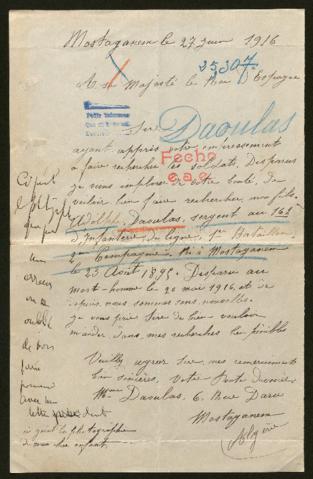 Mostaganem le 27 juin 1916
35307
A sa Majesté le Roi d'Espagne
Sire
Daoulas
ayant appris votre empressement
à faire rechercher les soldats Disparus
Fecho
je vous implore de votre bonté, de
c.a.c.
vouloir bien faire rechercher, mon fils
Adolphe Daoulas, sergent au 162
d'Infanterie de ligne, 1er Bataillon
2e Compagnie. Né à Mostaganem
le 23 Août 1895. Disparu au
mort-homme le 20 mai 1916, et
depuis nous sommes sans nouvelles.
je vous prie Sire de bien vouloir
m'aider dans mes recherches bien pénibles
Veuillez agréer Sire, mes remerciements
bien sincères, Votre
Mme Daoulas, 6. Rue Daru
Mostaganem
Algérie
Ci joint
erreur
on a
oublié
de vous
faire
avec
lettre
la photographie
de mon cher enfant.